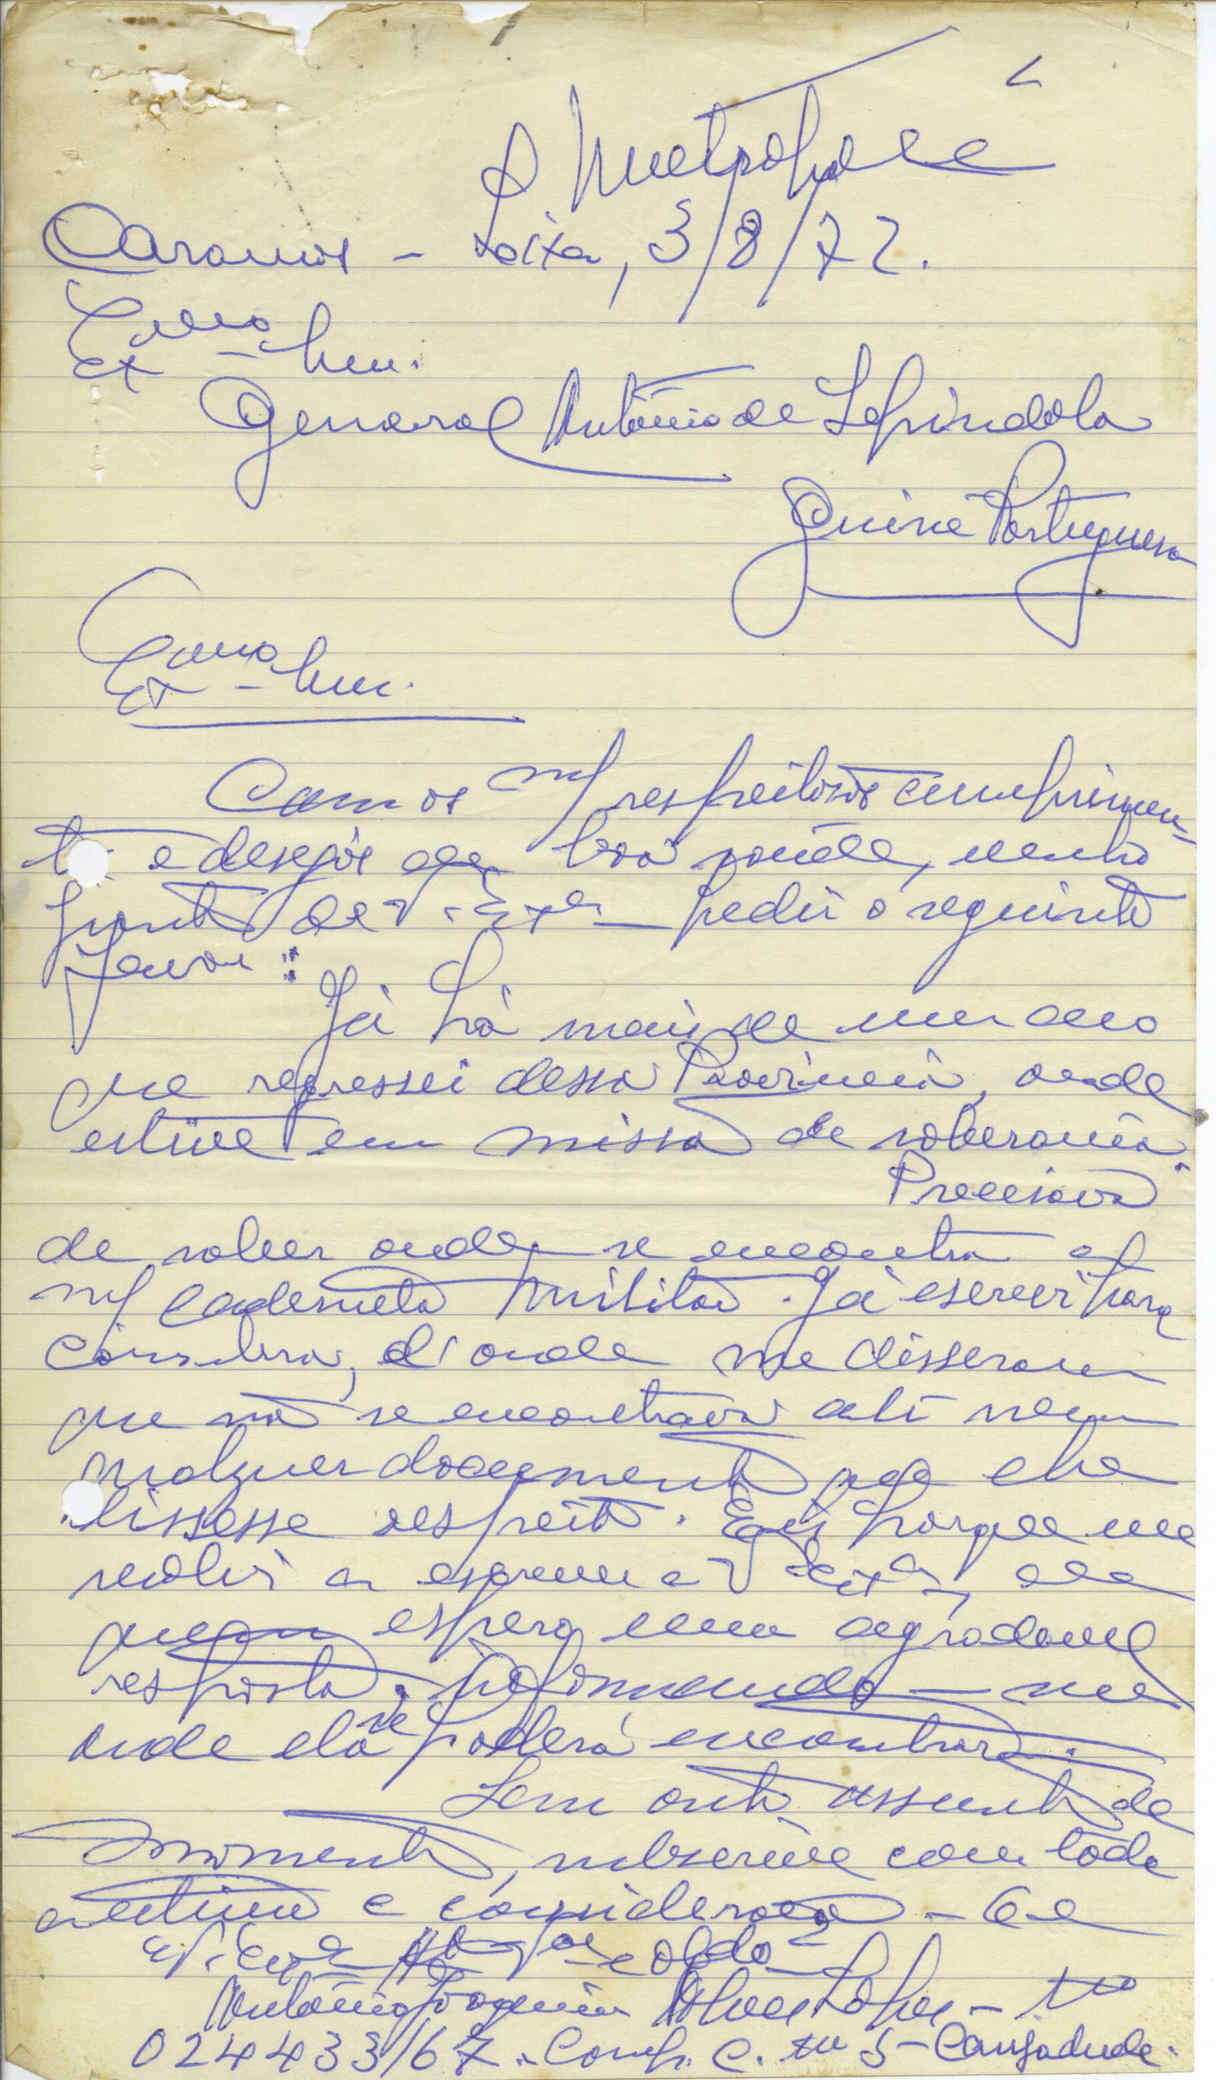 Metrópole
Caramos - Lixa, 3/8/72.
Exmo Sr.
General António de Spindola
Guiné Portuguesa
Exmo Sr.
Com os respeitosos cumprimen-
e desejos de boa saúde, venho
junto de V. Exa pedir o seguinte
favor:
Já há mais de um ano
que regressei dessa Província, onde
estive em missão de soberania.
Precisava
de saber onde se encontra a
caderneta militar. Já escrevi para
Coimbra, d'onde me disseram
que não se encontrava ali nem
qualquer documento que ela
dissesse respeito. Eis porque me
resolvi a escrever a V. Exa, de
quem espero uma agradavel
resposta, informando-me
onde ela se poderá encontrar.
Sem outro assunto de
momento, subscreve com toda
estima e consideração - de
V. Exa
António Joaquim Alves Lopes -
024433/67. Comp. C. 5 - Canjadude.